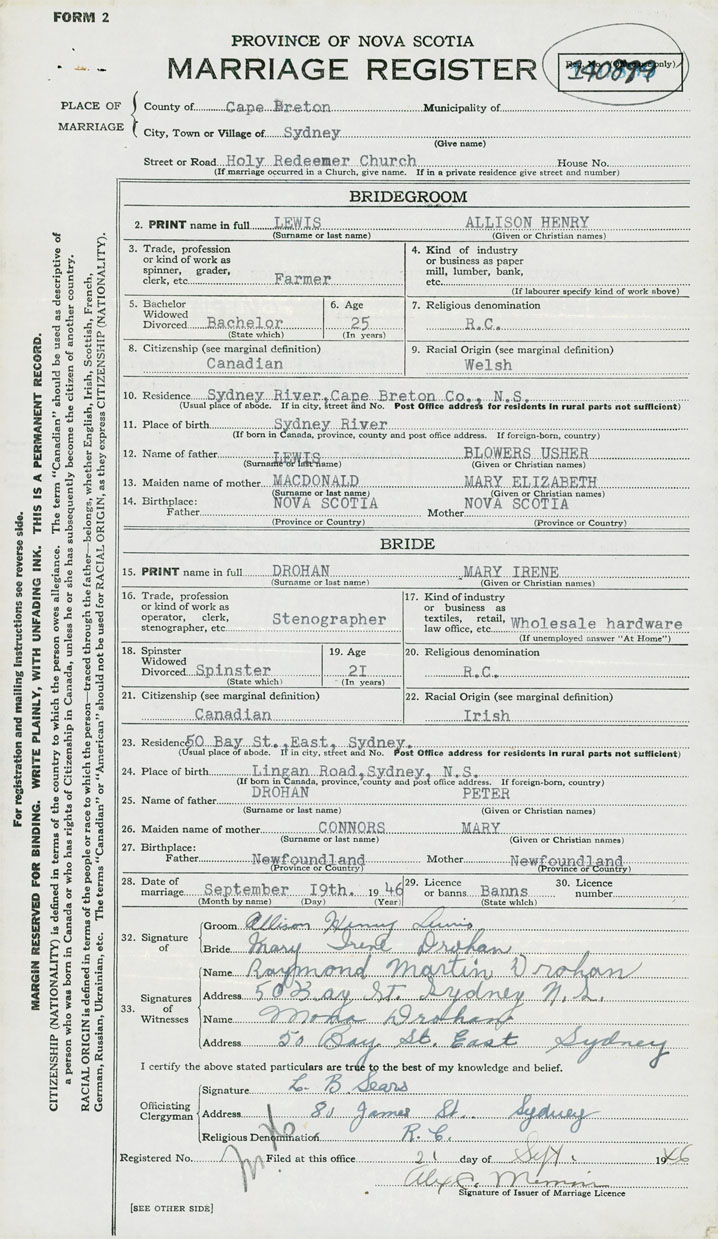 FORM 2
PROVINCE OF NOVA SCOTIA
MARRIAGE REGISTER
PLACE OF MARRIAGE
County of Cape Breton Municipality of
City, Town or Village of Sydney
(Give name)
Street or Road Holy Redeemer Church House No.
(If marriage occurred in a Church, give name. If in a private residence give street and number)
BRIDEGROOM
2. PRINT name in full LEWIS ALLISON HENRY
(Surname or last name) (Given or Christian names)
3. Trade, profession or kind of work as spinner, grader, clerk, etc. Farmer
4. Kind of industry or business as paper mill, lumber, bank, etc.
(If labourer specify kind of work above)
5. Bachelor Widowed Divorced Bachelor
(State which)
6. Age 25
(In years)
7. Religious denomination
R.C.
8. Citizenship (see marginal definition)
Canadian
9. Racial Origin (see marginal definition)
Welsh
10. Residence Sydney River, Cape Breton Co., N.S.
(Usual place of abode. If in city, street and No. Post Office address for residents in rural parts not sufficient)
11. Place of birth Sydney River
(If born in Canada, province, county and post office address. If foreign-born, country)
12. Name of father LEWIS BLOWERS USHER
(Surname or last name) (Given or Christian names)
13. Maiden name of mother MACDONALD MARY ELIZABETH
(Surname or last name) (Given or Christian names)
14. Birthplace: Father NOVA SCOTIA Mother NOVA SCOTIA
(Province or Country) (Province or Country)
BRIDE
15. PRINT name in full DROHAN MARY IRENE
(Surname or last name) (Given or Christian names)
16. Trade, profession or kind of work as operator, clerk, stenographer, etc. Stenographer
17. Kind of industry or business as textiles, retail, law office, etc. Wholesale hardware
(If unemployed answer "At Home")
18. Spinster Widowed Divorced Spinster
(State which)
19. Age 2I
(In years)
20. Religious denomination
R.C.
21. Citizenship (see marginal definition)
Canadian
22. Racial Origin (see marginal definition)
Irish
23. Residence 50 Bay St., East, Sydney.
(Usual place of abode. If in city, street and No. Post Office address for residents in rural parts not sufficient)
24. Place of birth Lingan Road, Sydney, N.S.
(If born in Canada, province, county and post office address. If foreign-born, country)
25. Name of father DROHAN PETER
(Surname or last name) (Given or Christian names)
26. Maiden name of mother CONNORS MARY
(Surname or last name) (Given or Christian names)
27. Birthplace: Father Newfoundland Mother Newfoundland
(Province or Country) (Province or Country)
28. Date of marriage September I9th. 1946
(Month by name) (Day) (Year)
29. Licence or banns Banns
(State which)
30. Licence number
32. Signature of
Groom Allison Henry Lewis
Bride Mary Irene Drohan
33. Signatures of Witnesses
Name Raymond Martin Drohan
Address 50 Bay St. Sydney N.S.
Name Mona Drohan
Address 50 Bay St. East Sydney
I certify the above stated particulars are true to the best of my knowledge and belief.
Officiating Clergyman
Signature L. B. Sears
Address 80 James St. Sydney
Religious Denomination R. C.
Registered No. Filed at this office 21 day of Sept. 1946
Signature of Issuer of Marriage Licence
[SEE OTHER SIDE]
For registration and mailing instructions see reverse side.
MARGIN RESERVED FOR BINDING. WRITE PLAINLY, WITH UNFADING INK. THIS IS A PERMANENT RECORD.
CITIZENSHIP (NATIONALITY) is defined in terms of the country to which the person owes allegiance. The term "Canadian" should be used as descriptive of
a person who was born in Canada or who has rights of Citizenship in Canada, unless he or she has subsequently become the citizen of another country.
RACIAL ORIGIN is defined in terms of the people or race to which the person—traced through the father—belongs, whether English, Irish, Scottish, French,
German, Russian, Ukrainian, etc. The terms "Canadian" or "American" should not be used for RACIAL ORIGIN, as they express CITIZENSHIP (NATIONALITY).